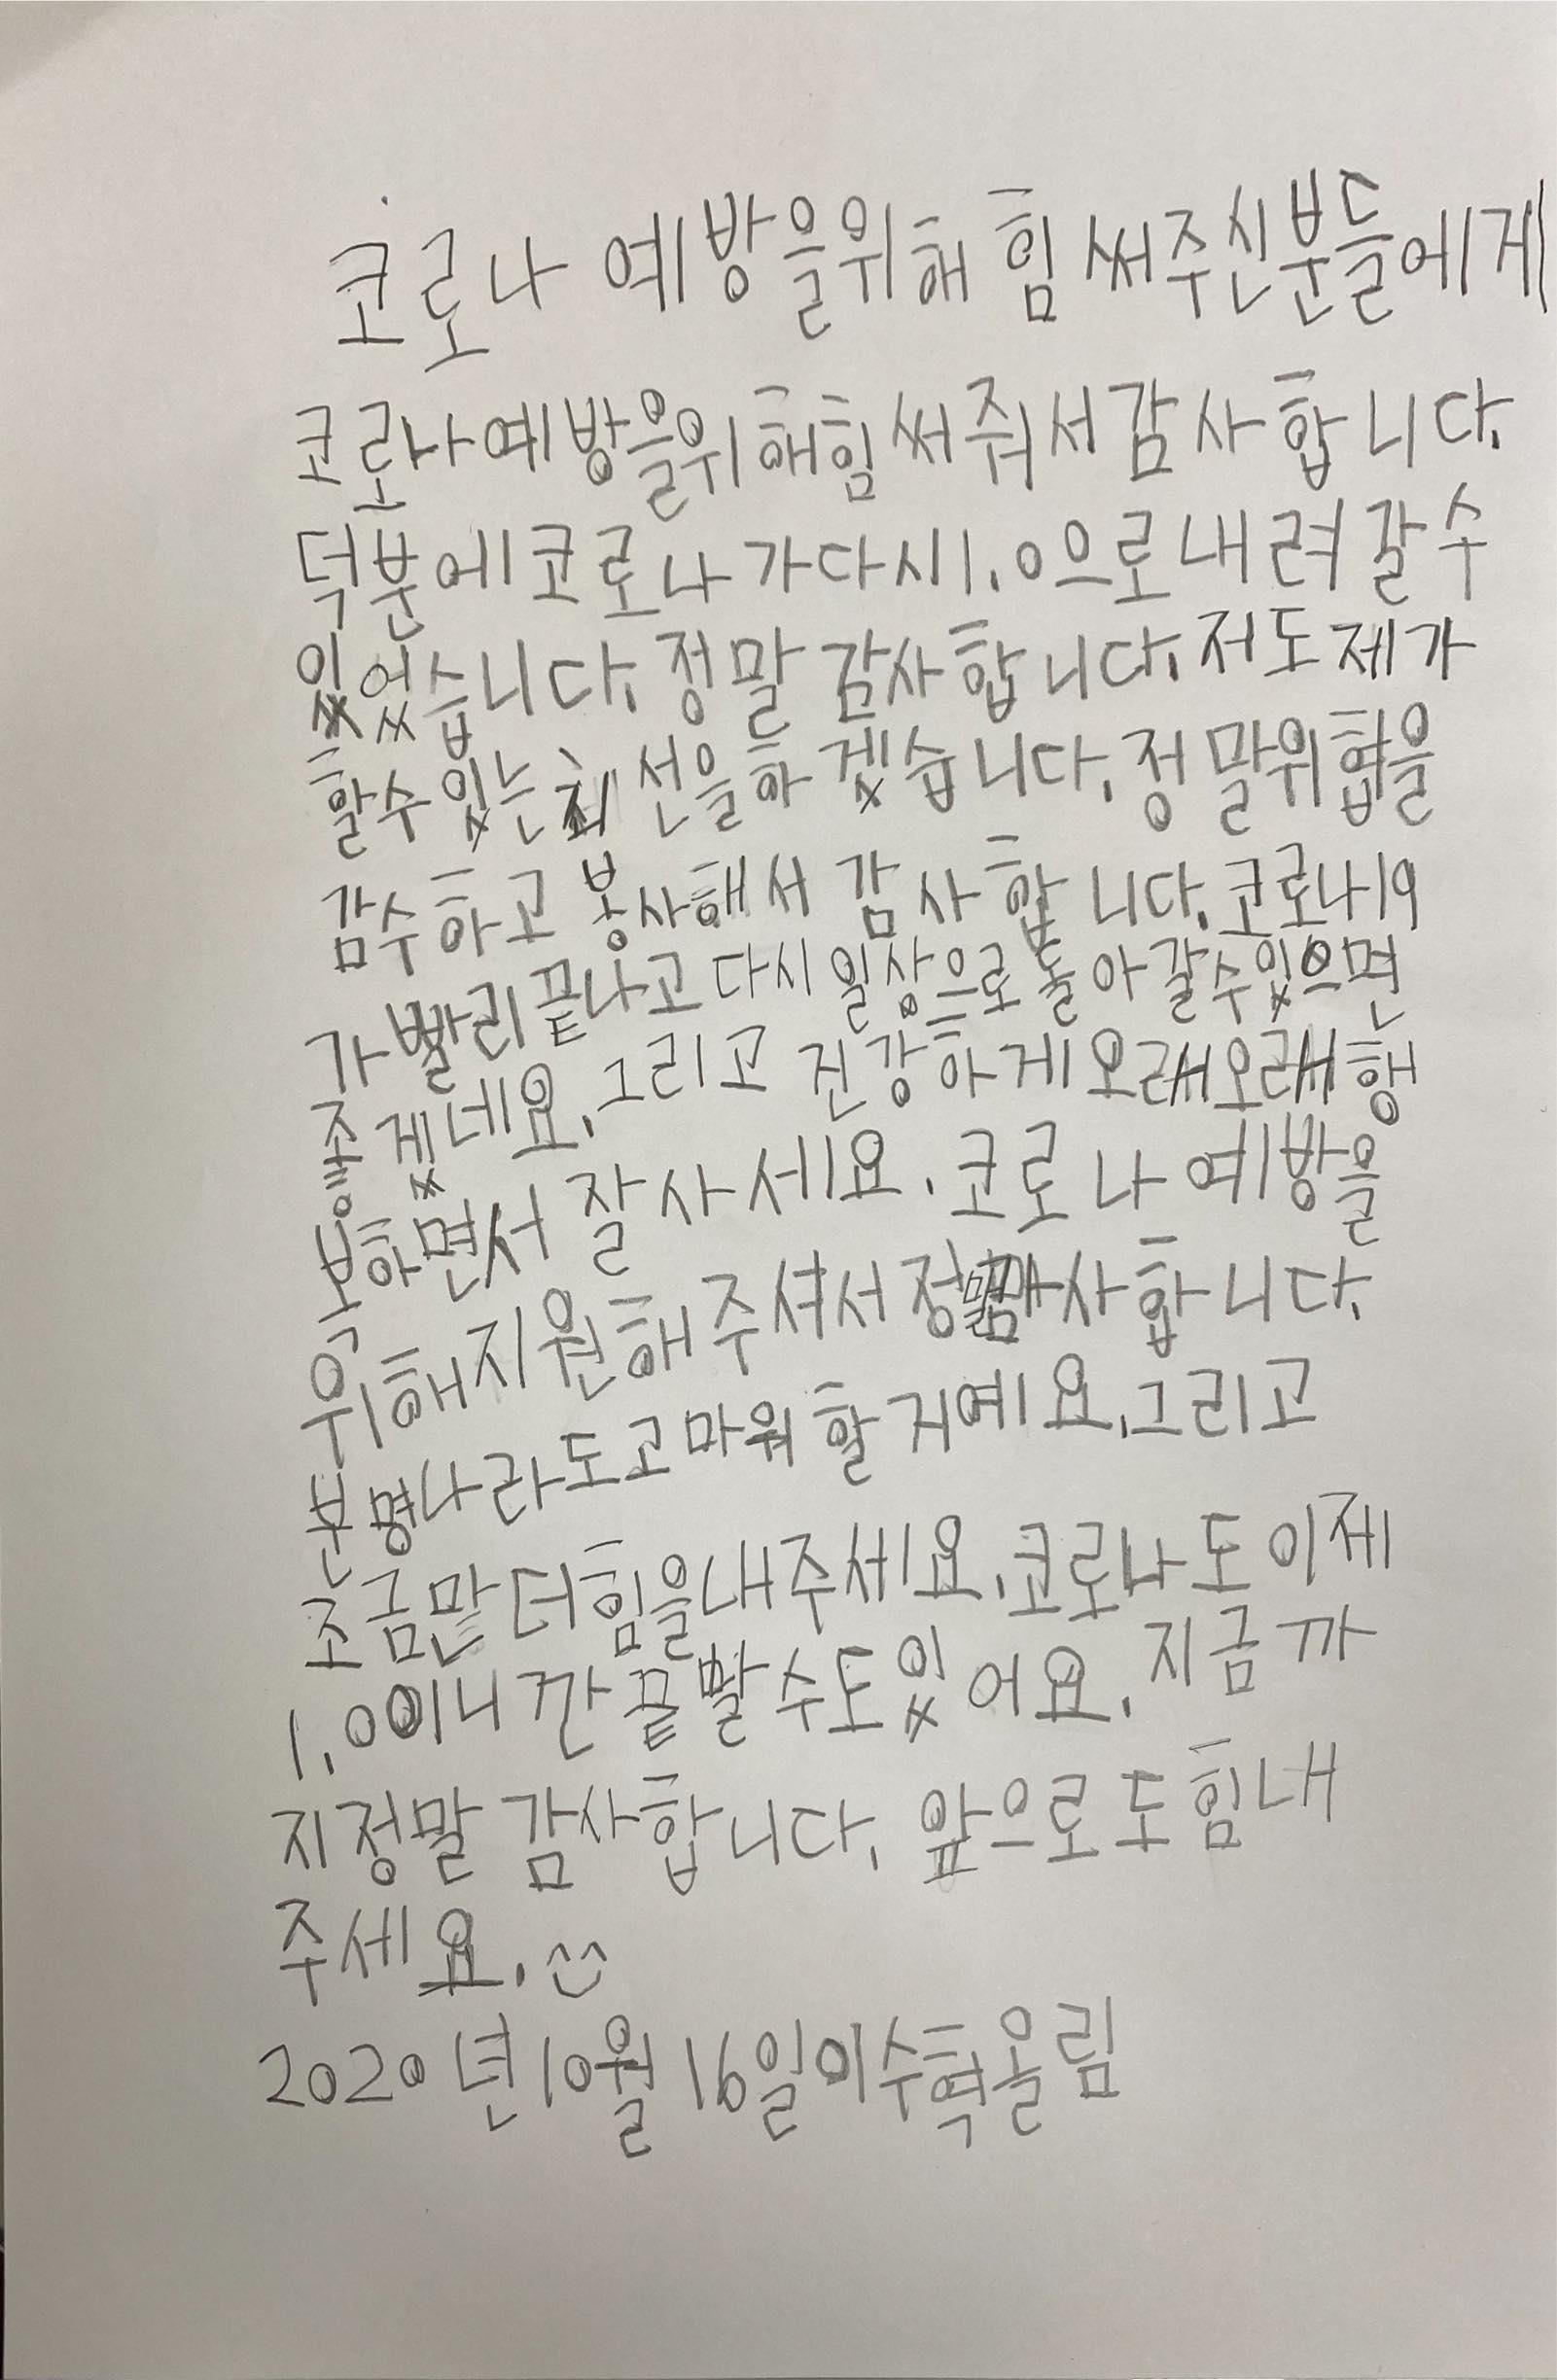 코로나 예방을위해 힘써주신분들에게
코로나예방을위해힘써줘서감사합니다.
덕분에코로나가다시1.0으로내려갈수
있었습니다.정말감사합니다.저도제가
할수있는최선을하겠습니다.정말위협을
감수하고 봉사해서 감사합니다.코로나19
가빨리끝나고다시일상으로돌아갈수있으면
좋겠네요.그리고 건강하게오래오래행
복하면서 잘사세요.코로나 예방을
위해지원해주셔서 정말 감사합니다.
분명나라도고마워할거예요.그리고
조금만더힘을내주세요.코로나도이제
1.0이니깐끝날수도있어요.지금까
지정말감사합니다.앞으로도힘내
주세요.^^
2020년10월16일이수혁올림